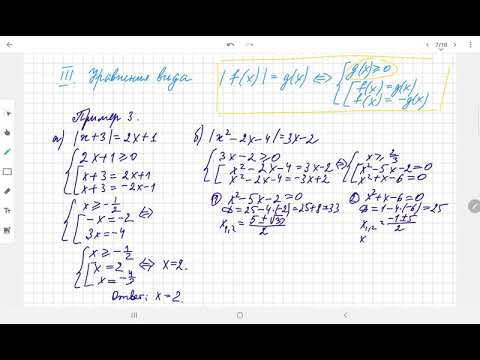 7/18
III Уравнения вида |f(x)| = g(x) ⇔ { g(x) ≥ 0 [ f(x) = g(x) f(x) = -g(x)
Пример 3.
а) |x+3| = 2x+1
{ 2x+1 ≥ 0
[ x+3 = 2x+1
x+3 = -2x-1
{ x ≥ -1/2
[ -x = -2 ⇔
3x = -4
{ x ≥ -1/2
[ x = 2 ⇔ x = 2.
x = -4/3
Ответ: x = 2.
б) |x²-2x-4| = 3x-2
{ 3x-2 ≥ 0
[ x²-2x-4 = 3x-2 ⇔
x²-2x-4 = -3x+2
{ x ≥ 2/3
[ x²-5x-2 = 0
x²+x-6 = 0
① x²-5x-2 = 0
D = 25-4·(-2) = 25+8 = 33
x₁,₂ = (5±√33)/2
② x²+x-6 = 0
D = 1-4·(-6) = 25
x₁,₂ = (-1±5)/2
x